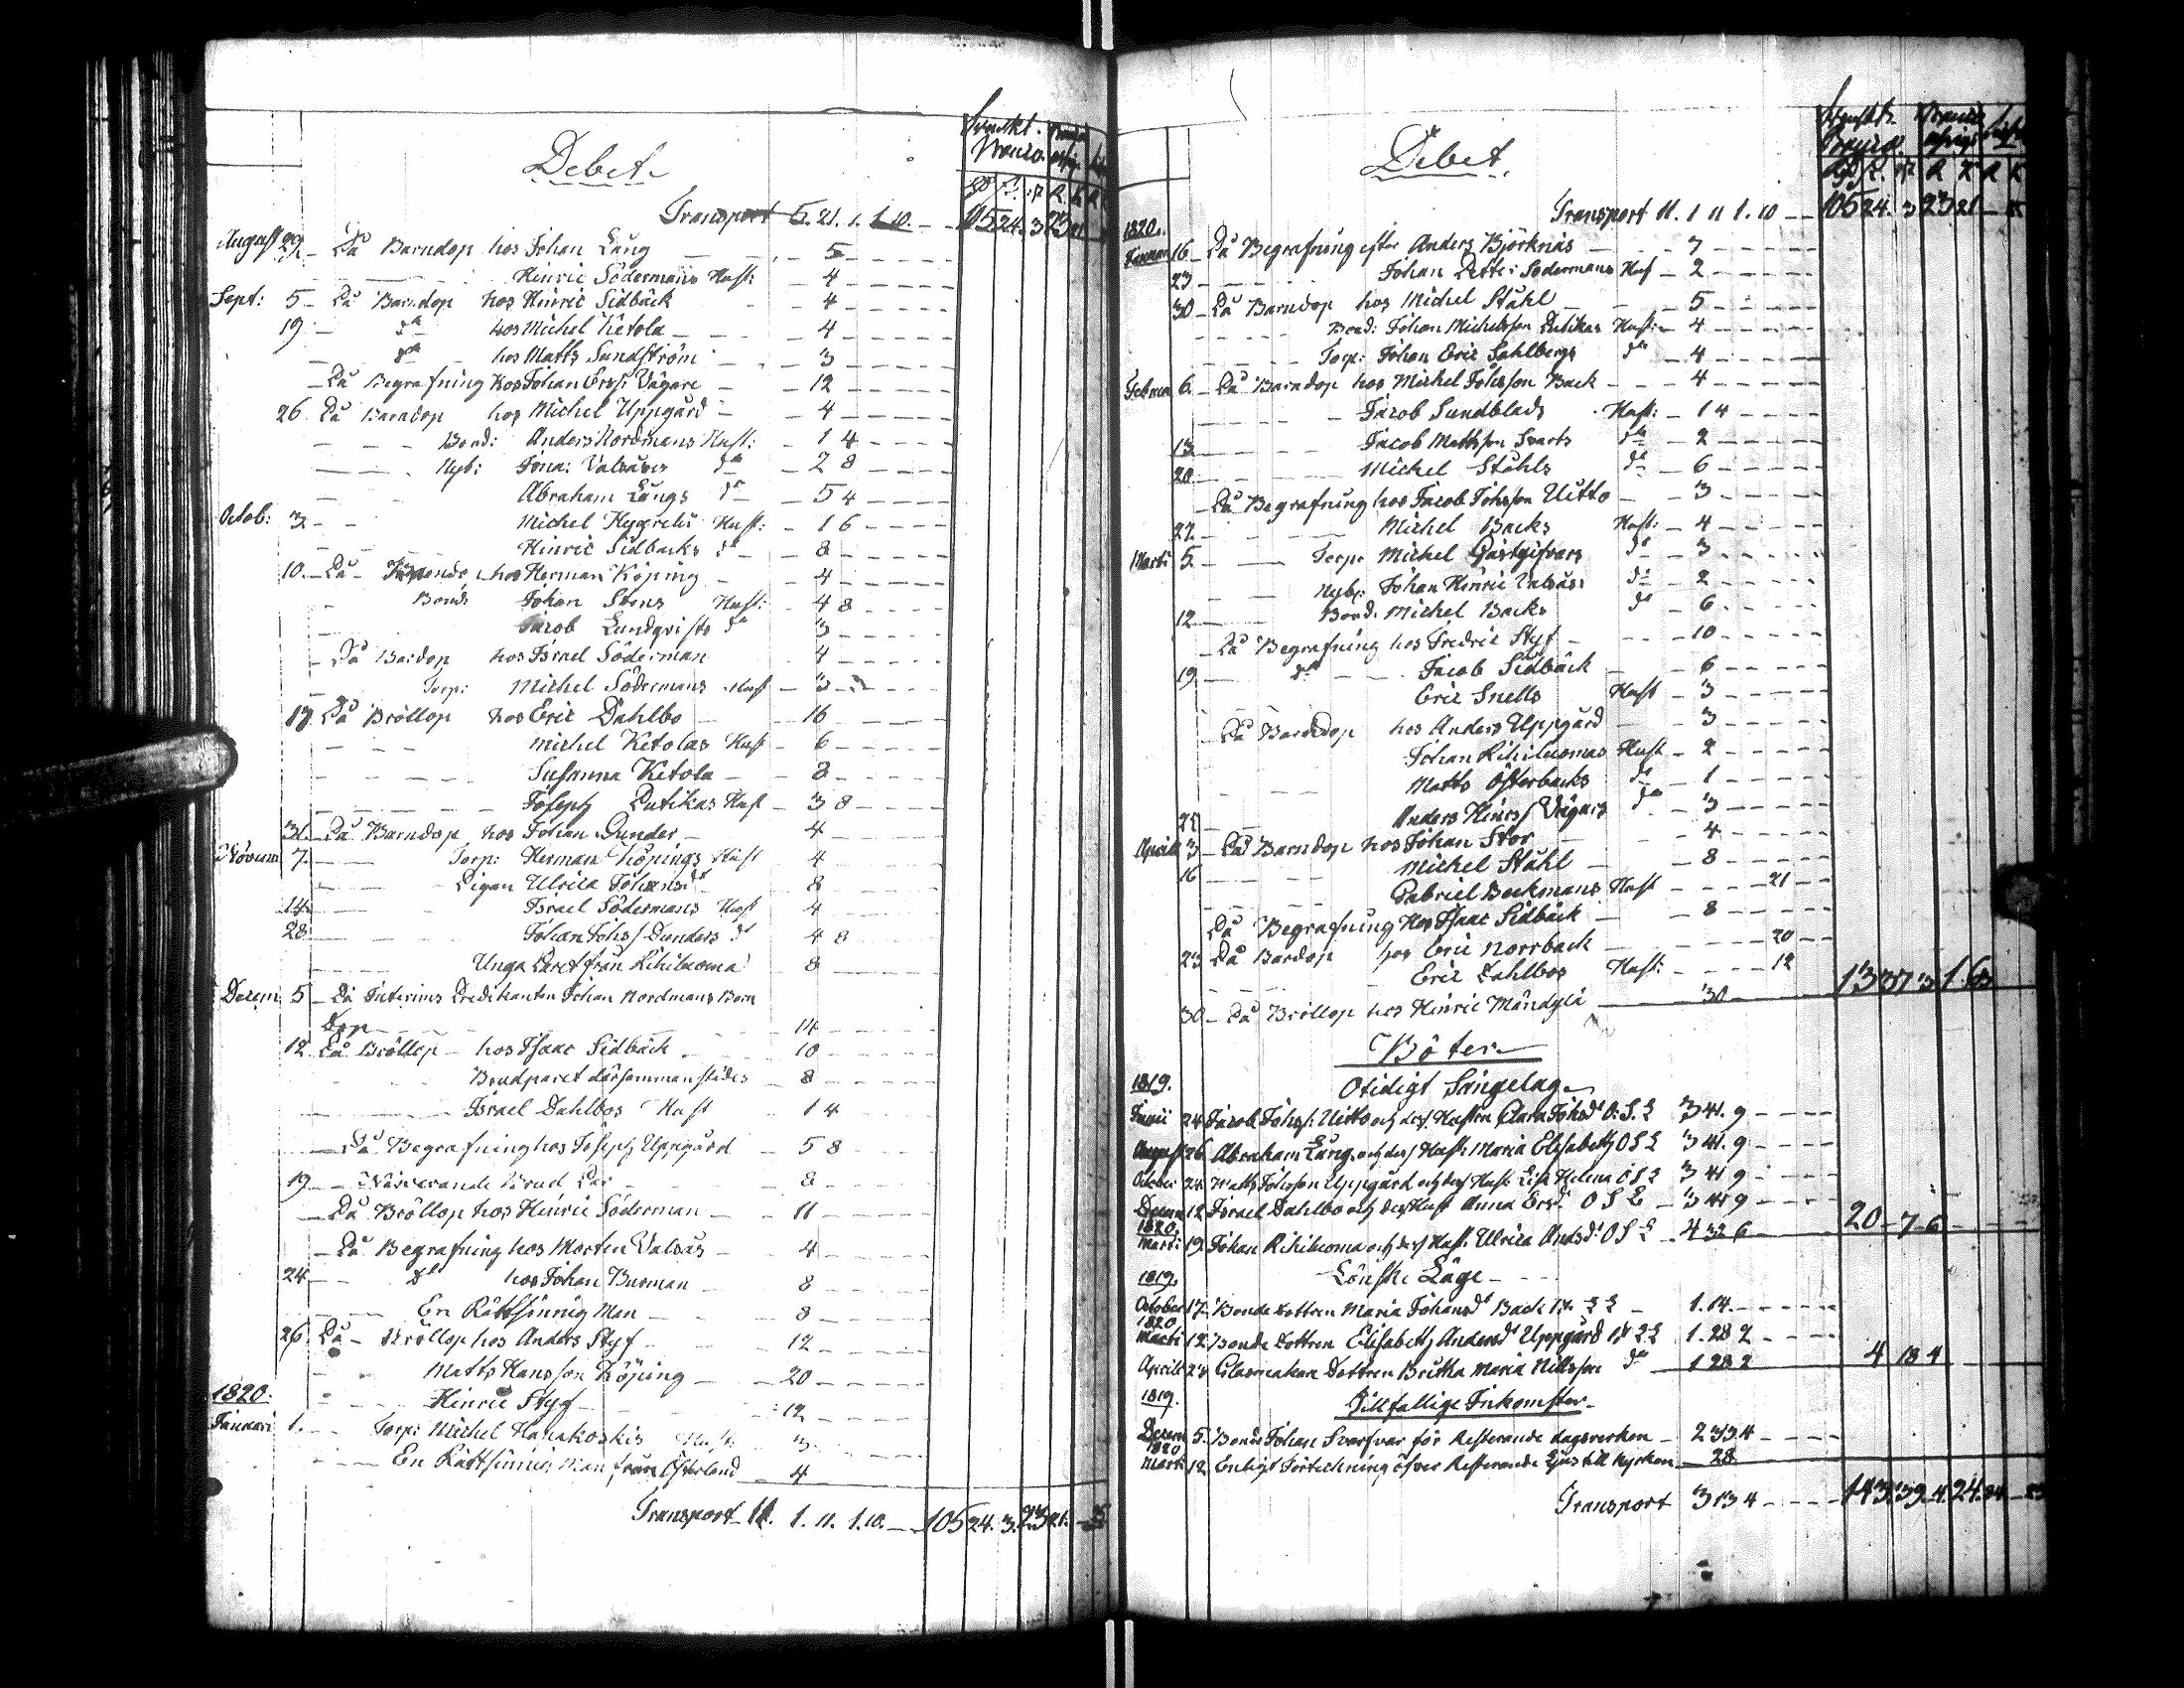 Debet.
Transport 5. 21. 1. 1.10. 105 24. 3 23 21
August 29 På Barndop hos Johan Lång 5
Hinric Södermans Hust: 4
Sept: 5 På Barndop hos Hinric Sidbäck 4
19 do hos Michel Ketola 4
do hos Matts Sundström 3
På Begrafning hos Johan Ersf: Vägare 12
26 På Barndop hos Michel Uppgård 4
Bond: Anders Nordmans Hust: 1 4
Nyb: Jona: Valsäs do 2 8
Abraham Långs do 5 4
Octob: 3 Michel Hust: 1 6
Hinric Sidbacks do 8
10. På hos Herman Köping 4
Bond: Johan Stens Hust: 4 8
Jacob Lundqvists do 3
På Bardop hos Israel Söderman 4
Torp: Michel Södermans Hust 3
17 På Bröllop hos Eric Dahlbo 16
Michel Ketolas Hust 6
Susanna Ketola 8
Joseph Putikas Hust 3 8
31. På Barndop hos Johan Dunder 4
Novem 7. Torp: Herman Köpings Hust 4
Pigan Ulrica Johansd: 8
14 Israel Södermans Hust 4
28 Johan Johs/ Dunders do 4 8
Unga Paret från Rihiluoma 8
Decem 5 På Interims Predikanten Johan Nordmans Barn
Dop 14
12 På Bröllop hos Isaac Sidbäck 10
Brudparet därsammanstädes 8
Israel Dahlbos Hust 1 4
På Begrafning hos Joseph Uppgård 5 8
19 Närvarande Brud Par 8
På Bröllop hos Hinric Söderman 11
På Begrafning hos Morten Valsäs 4
24 do hos Johan Burman 8
En Rättsinnig Man 8
26 På Bröllop hos Anders Styf 12
Matts Hansson Köping 20
1820. Hinric Styf 12
Januari 1. Torp: Michel Hanakoskis Hust: 3
En Rättsinnig Man från Österland 4
Transport 11. 1. 11. 1.10. 105 24. 3. 23 21.
Debet.
Transport 11. 1 11 1.10 105 24. 3 23 21
1820.
Januari 16 På Begrafning efter Anders Björknäs 7
23 Johan Petter Södermans Hust 2
30 På Barndop hos Michel Ståhl 5
Bond: Johan Michelsson Putikas Hust: 4
Torp: Johan Eric Sahlbergs do 4
Februar 6. På Barndop hos Michel Johsson Back 4
Jacob Sundblads Hust: 1 4
13 Jacob Mattsson Svarts do 2
20 Michel Ståhls do 6
På Begrafning hos Jacob Johsson Uitto 3
27 Michel Backs Hust: 4
Marti 5. Torp: Michel Gästgifvars do 3
Nyby: Johan Hinric Valsäs: do 2
12 Bond: Michel Backs do 6
På Begrafning hos Fredric Styf 10
19 do Jacob Sidbäck 6
Eric Snells Hust 3
På Barndop hos Anders Uppgård 3
Johan Rihiluomas Hust 2
Matts Österbacks do 1
Anders Hinrs/ Vägars do 3
Aprill 3 På Barndop hos Johan Stor 4
16 Michel Ståhl 8
Gabriel Beckmans Hust 21
På Begrafning hos Isaac Sidbäck 8
23 På Bardop hos Eric Norrback 20
Eric Dahlbos Hust: 12
30 På Bröllop hos Hinric Mändylä 30 13 37 3 1.63
Böter
1819. Otidigt Sängelag
Junii 24 Jacob Johs: Uitto och dess Hustru Clara Johsd: O. S. L 3 41. 9
August 26 Abraham Lång och dess Hust: Maria Elisabeth O S L 3 41. 9
October 24 Matts Johsson Uppgård och dess Hust: Lisa Helena O S L 3 41 9
Decem 12 Israel Dahlbo och dess Hust Anna Ersd: O S L 3 41 9
1820.
Marti 19 Johan Rihiluoma och dess Hust: Ulrica Andsd: O S L 4 32 6 20 7 6
1819. Lönska Läge
October 17 Bonde dottren Maria Johansd: Back L L 1. 14.
1820
Marti 12 Bonde Dottren Elisabeth Andersd: Uppgård L L 1. 28 2
Aprill 23 Dottren Britha Maria Nillsson do 1 28 2 4 18 4
1819. Tillfällige Inkomster
Decem 5. Bond: Johan Svarfvar för Resterande dagsverken 2 33 4
1820
Marti 12 Enligt Förtekning öfver Resterande Ljus till Kyrkan 28
Transport 3 13 4 143 39 4 24. 84